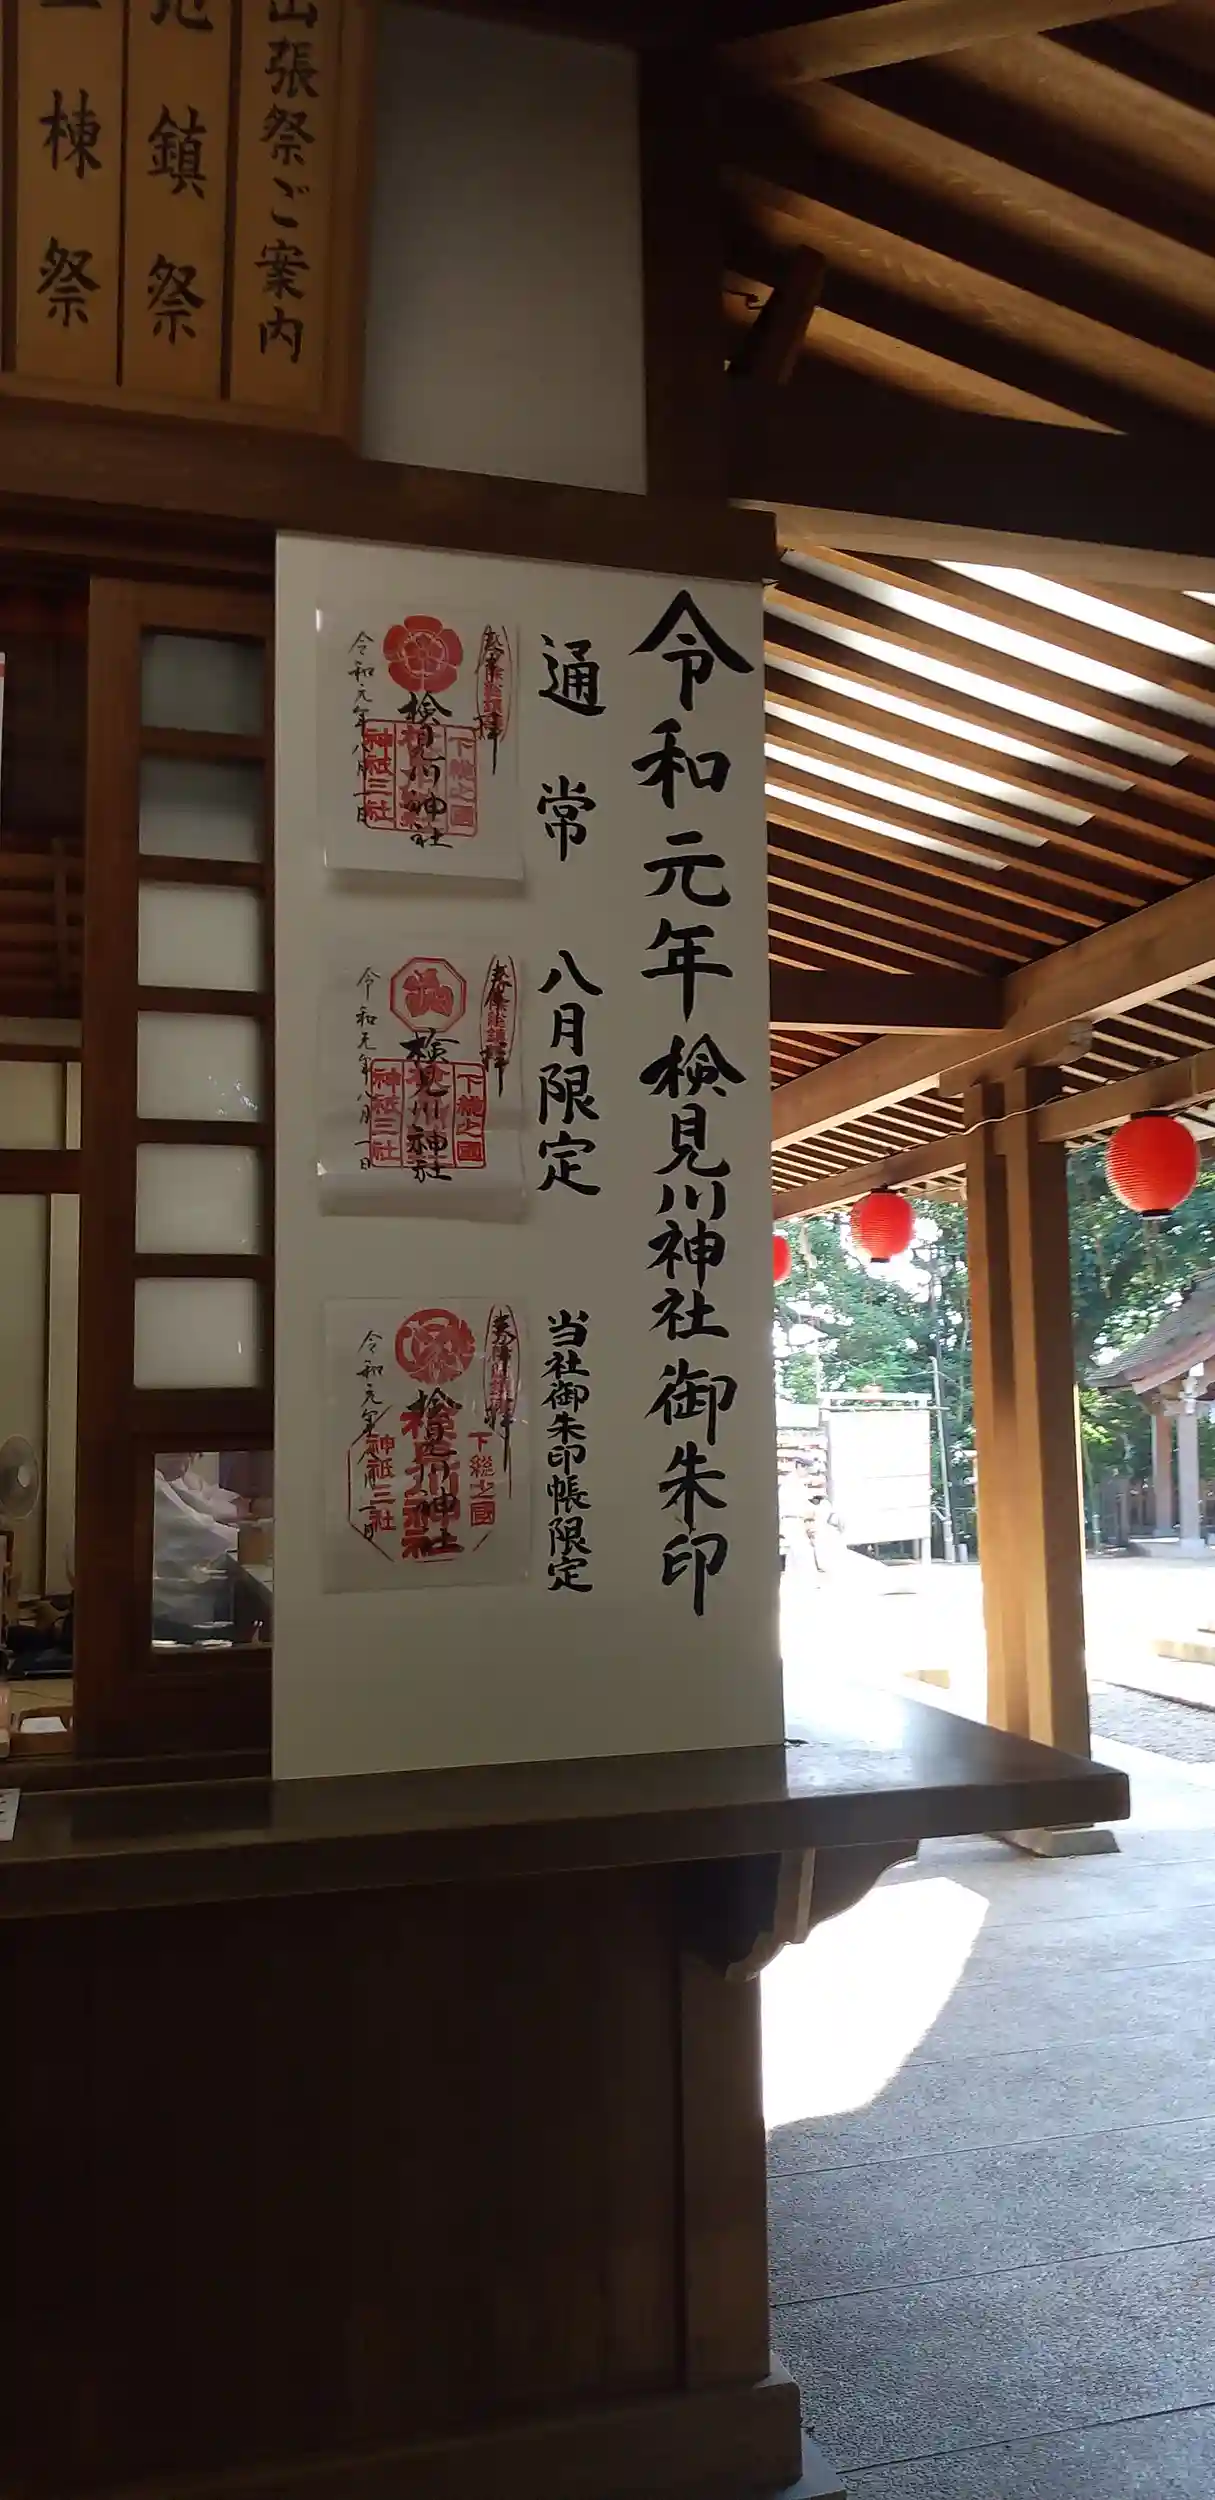 出張祭ご案内
地鎮祭
上棟祭
令和元年検見川神社御朱印
通常
八月限定
当社御朱印帳限定
検見川神社
下総之國
神祇三社
令和元年八月一日
検見川神社
下総之國
神祇三社
令和元年八月一日
検見川神社
下総之國
神祇三社
令和元年八月一日